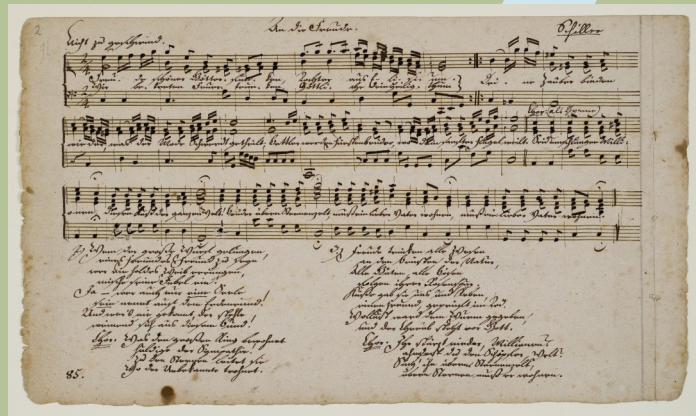 2
Nicht zu geschwind.
An die Freude.
Schiller
Freu- de schöner Götter- fun- ken, Tochter aus E- li- zi- um
Wir be- treten feuer- trun- ken, Göttli- che
Dei- ne Zauber binden
Chor
wieder, was der Mode Schwerd getheilt, Bettler werden Fürstenbrüder, wo dein sanfter Flügel weilt. Seid umschlungen Milli-
onen, diesen Kuß der ganzen Welt! Brüder überm Sternenzelt, muß ein lieber Vater wohnen, muß ein lieber Vater wohnen.
Wem der große Wurf gelungen,
eines Freundes Freund zu seyn
wer ein holdes Weib errungen,
mische seine Jubel ein.
Ja – wer auch nur eine Seele
sein nennt auf dem Erdenrund!
Und wer's nie gekonnt, der stehle
weinend sich aus diesem Bund!
Chor: Was den großen Ring bewohnet
huldige der Sympathie.
Zu den Sternen leitet sie
Wo der Unbekannte thronet.
85.
Freude trinken alle Wesen
an den Brüsten der Natur,
Alle Guten, alle Bösen
folgen ihrer Rosenspur.
Küße gab sie uns und Reben,
einen Freund, geprüft im Tod.
Wollust ward dem Wurm gegeben,
und der Cherub steht vor Gott.
Chor: Ihr stürzt nieder, Millionen?
Ahndest du den Schöpfer, Welt?
Such' ihn überm Sternenzelt,
überm Sternen muß er wohnen.